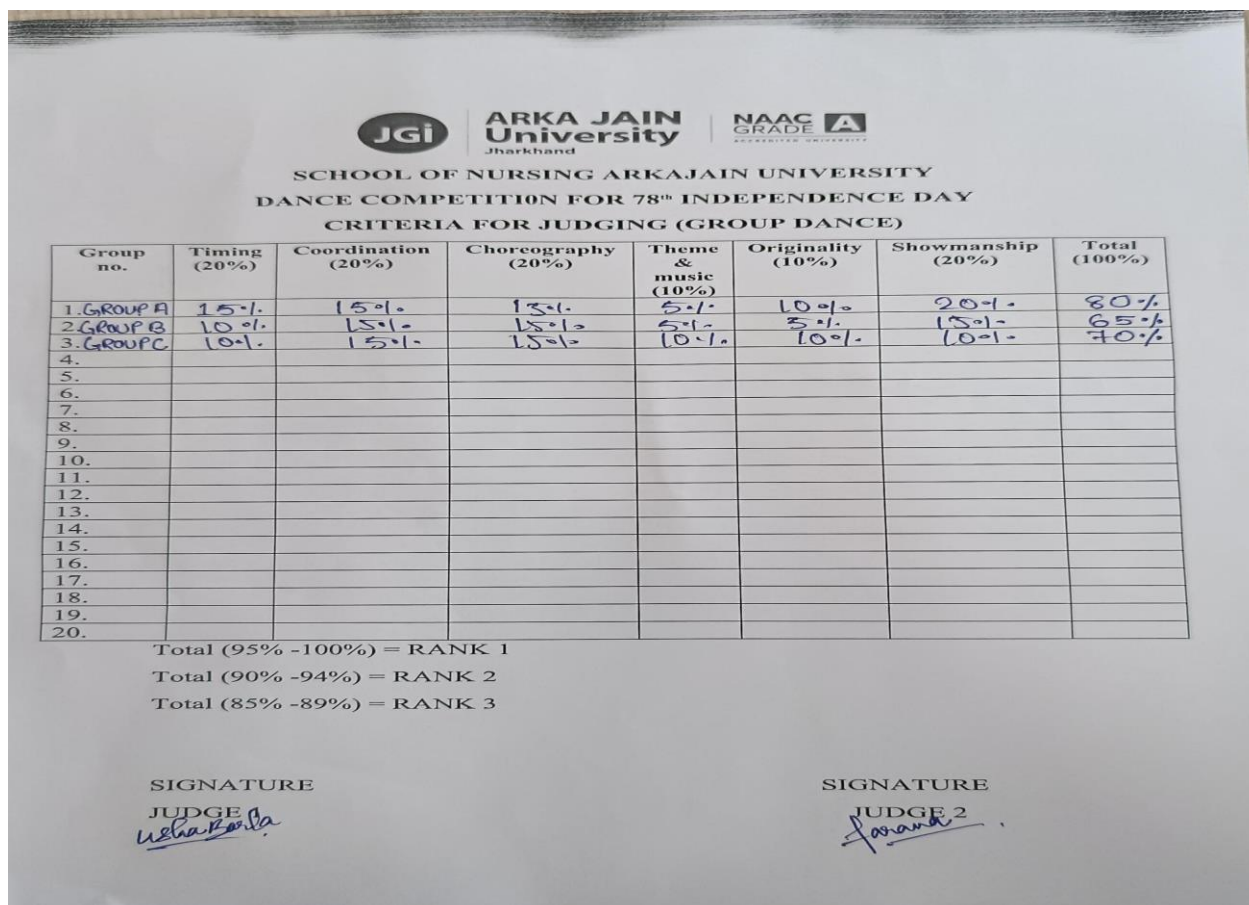 JGi
ARKA JAIN
University
Jharkhand
NAAC
GRADE A
ACCREDITED UNIVERSITY
SCHOOL OF NURSING ARKAJAIN UNIVERSITY
DANCE COMPETITI0N FOR 78th INDEPENDENCE DAY
CRITERIA FOR JUDGING (GROUP DANCE)
Group no. Timing (20%) Coordination (20%) Choreography (20%) Theme & music (10%) Originality (10%) Showmanship (20%) Total (100%)
1. GROUP A 15% 15% 15% 5% 10% 20% 80%
2. GROUP B 10% 15% 15% 5% 5% 15% 65%
3. GROUP C 10% 15% 15% 10% 10% 10% 70%
4.
5.
6.
7.
8.
9.
10.
11.
12.
13.
14.
15.
16.
17.
18.
19.
20.
Total (95% -100%) = RANK 1
Total (90% -94%) = RANK 2
Total (85% -89%) = RANK 3
SIGNATURE SIGNATURE
JUDGE JUDGE 2
Usha Barla